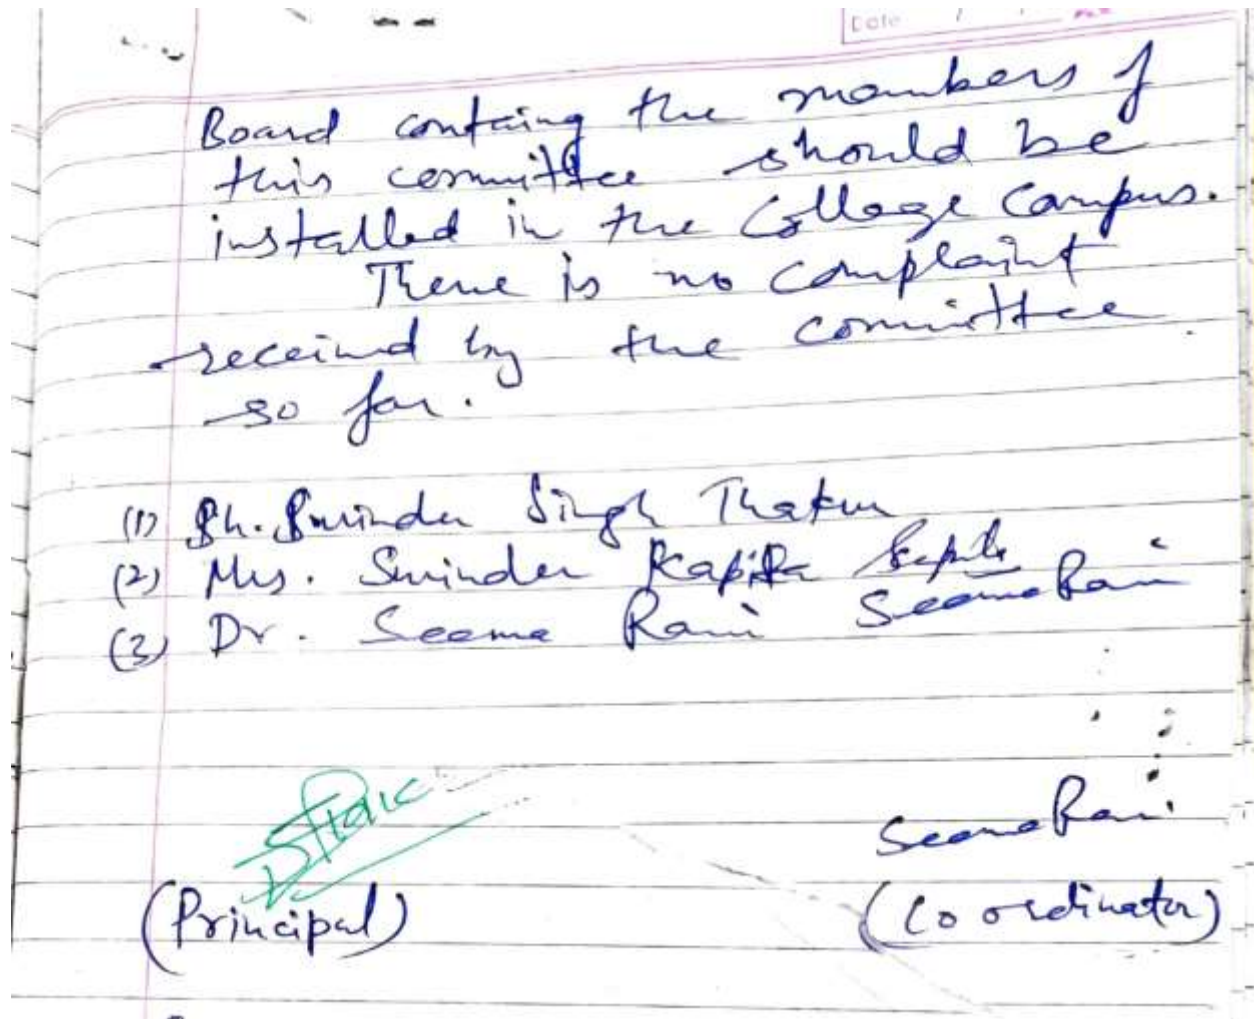 Date
Board containg the mambers of
this committee should be
installed in the College Campus.
There is no complaint
received by the committee
so far.
(1) Sh. Surinder Singh Thakur
(2) Mrs. Surinder Kapila Kapila
(3) Dr. Seema Rani Seema Rani
Seema Rani
(Principal) (Coordinator)